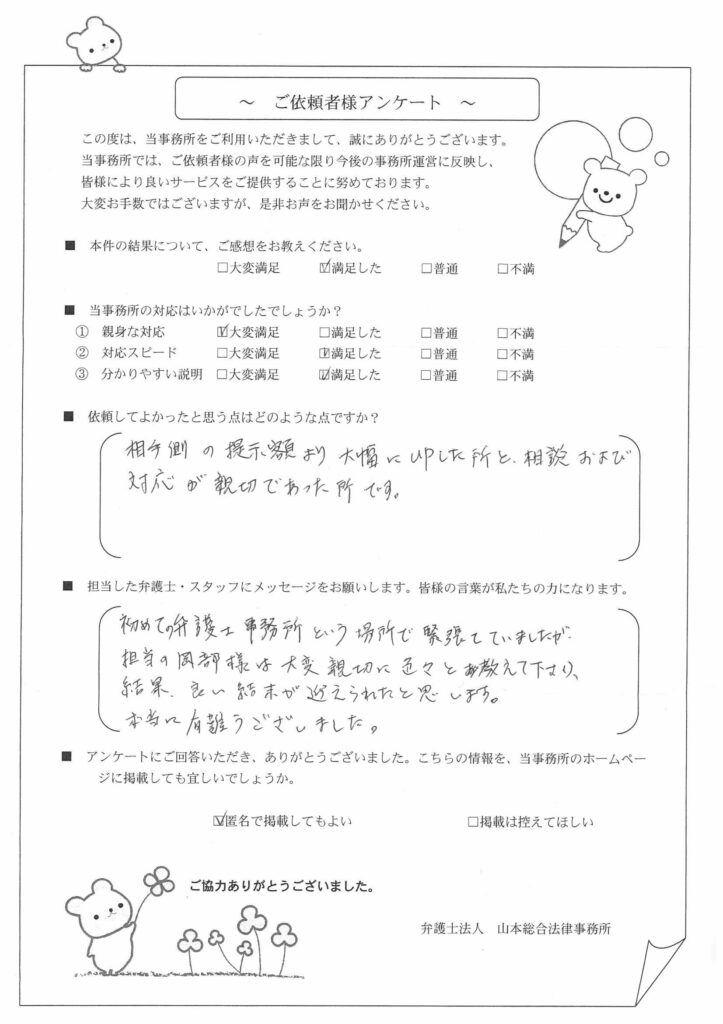 ～ ご依頼者様アンケート ～
この度は、当事務所をご利用いただきまして、誠にありがとうございます。
当事務所では、ご依頼者様の声を可能な限り今後の事務所運営に反映し、
皆様により良いサービスをご提供することに努めております。
大変お手数ではございますが、是非お声をお聞かせください。
■ 本件の結果について、ご感想をお教えください。
□大変満足 ☑満足した □普通 □不満
■ 当事務所の対応はいかがでしたでしょうか？
① 親身な対応 ☑大変満足 □満足した □普通 □不満
② 対応スピード □大変満足 ☑満足した □普通 □不満
③ 分かりやすい説明 □大変満足 ☑満足した □普通 □不満
■ 依頼してよかったと思う点はどのような点ですか？
相手側の提示額より大幅にUPした所と、相談および
対応が親切であった所です。
■ 担当した弁護士・スタッフにメッセージをお願いします。皆様の言葉が私たちの力になります。
初めての弁護士事務所という場所で緊張していましたが
担当の岡部様は大変親切に色々とお教えて下さり、
結果、良い結末が迎えられたと思います。
本当に有難うございました。
■ アンケートにご回答いただき、ありがとうございました。こちらの情報を、当事務所のホームペー
ジに掲載しても宜しいでしょうか。
☑匿名で掲載してもよい □掲載は控えてほしい
ご協力ありがとうございました。
弁護士法人 山本総合法律事務所